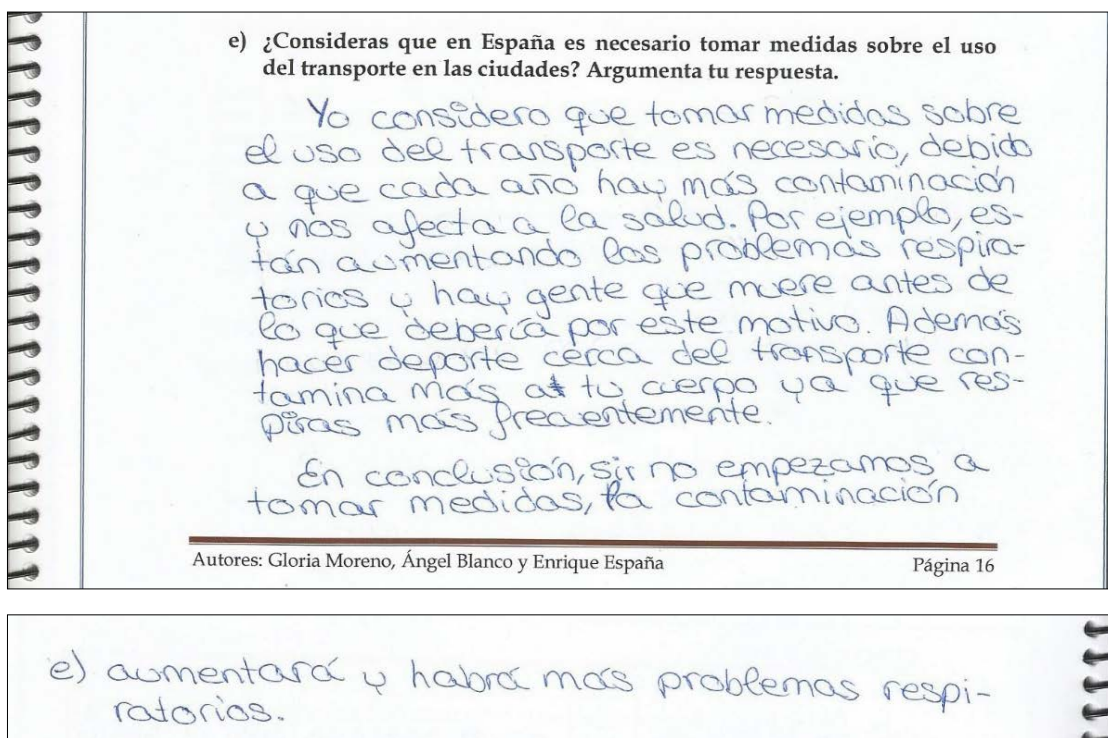 e) ¿Consideras que en España es necesario tomar medidas sobre el uso
del transporte en las ciudades? Argumenta tu respuesta.
Yo considero que tomar medidas sobre
el uso del transporte es necesario, debido
a que cada año hay más contaminación
y nos afecta a la salud. Por ejemplo, es-
tán aumentando los problemas respira-
torios y hay gente que muere antes de
lo que debería por este motivo. Además
hacer deporte cerca del transporte con-
tamina más a tu cuerpo ya que res-
piras más frecuentemente.
En conclusión, si no empezamos a
tomar medidas, la contaminación
Autores: Gloria Moreno, Ángel Blanco y Enrique España
Página 16
e) aumentará y habrá más problemas respi-
ratorios.